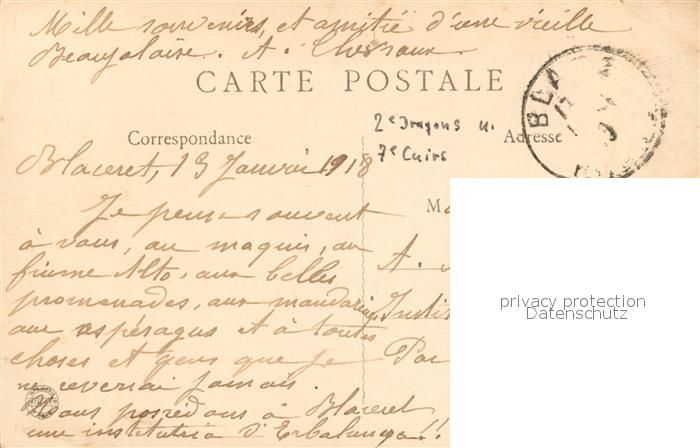 Mille souvenirs, et amitié d'une vieille
Beaujolaise. A.
CARTE POSTALE
2e Dragons u.
7e Cuirs
Correspondance
Adresse
BLA
Blaceret, 13 Janvier 1918
Je pense souvent
à vous, au maquis, au
fiume Alto, aux belles
promenades, aux mandarines
aux aspérages et à toutes
choses et gens que je
ne reverrai jamais.
Nous possédons à Blaceret
une institutrice d'Erbalunga!!
M
A.
Instit
Par
privacy protection
Datenschutz